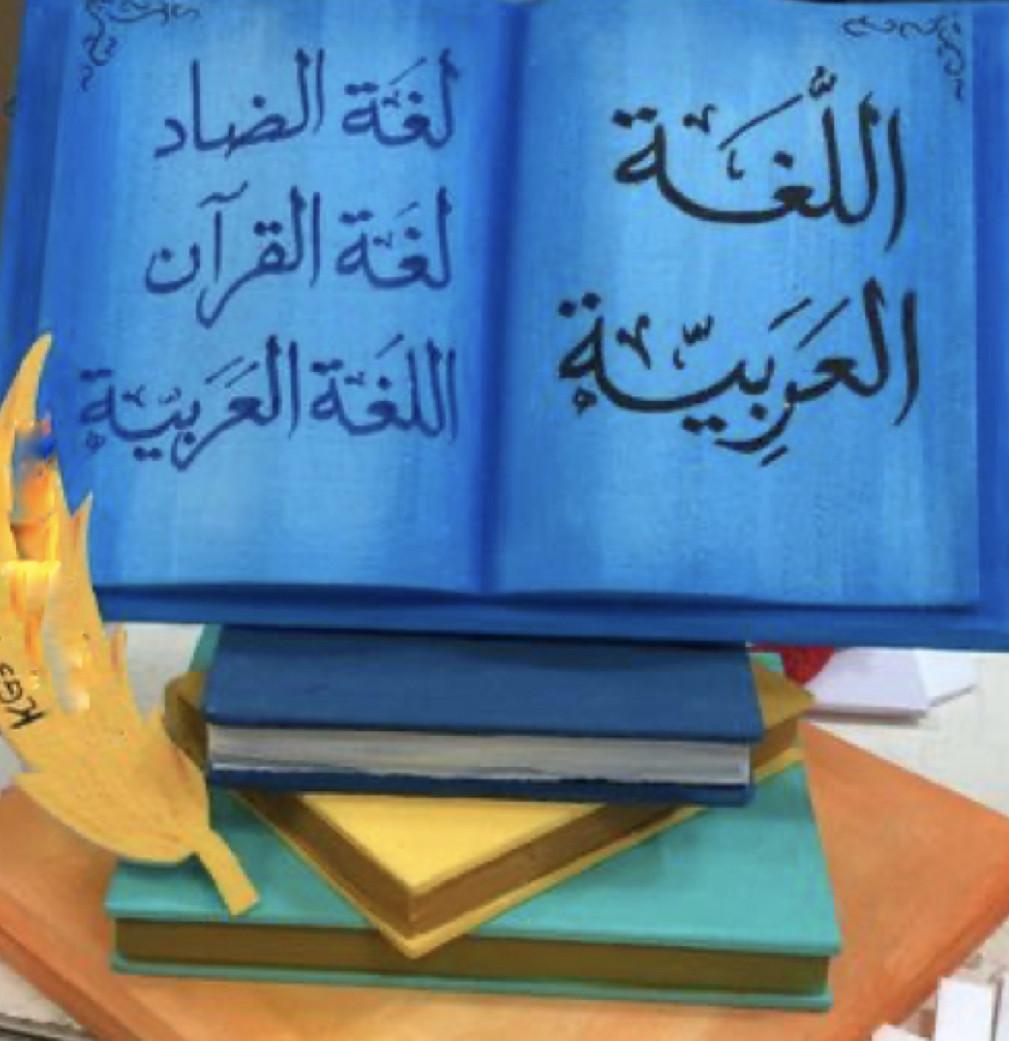 اللُّغَـة
العَرَبِيّـة
لغَـة الضاد
لغَـة القرآن
اللغَـة العَرَبيّـة